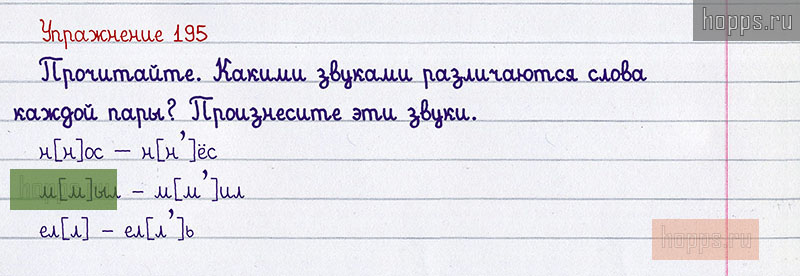 hopps.ru
Упражнение 195
Прочитайте. Какими звуками различаются слова
каждой пары? Произнесите эти звуки.
н[н]ос – н[н’]ёс
м[м]ыл – м[м’]ил
ел[л] – ел[л’]ь
hopps.ru